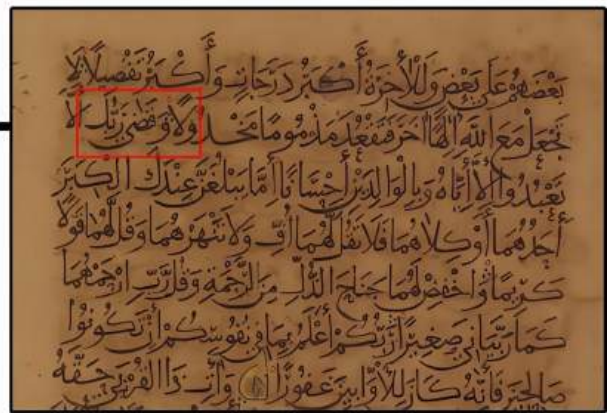 بَعْضَهُمْ عَلَى بَعْضٍ وَلَلْآخِرَةُ أَكْبَرُ دَرَجَاتٍ وَأَكْبَرُ تَفْضِيلًا لَا
تَجْعَلْ مَعَ اللَّهِ إِلَهًا آخَرَ فَتَقْعُدَ مَذْمُومًا مَخْذُولًا وَقَضَى رَبُّكَ أَلَّا
تَعْبُدُوا إِلَّا إِيَّاهُ وَبِالْوَالِدَيْنِ إِحْسَانًا إِمَّا يَبْلُغَنَّ عِنْدَكَ الْكِبَرَ
أَحَدُهُمَا أَوْ كِلَاهُمَا فَلَا تَقُلْ لَهُمَا أُفٍّ وَلَا تَنْهَرْهُمَا وَقُلْ لَهُمَا قَوْلًا
كَرِيمًا وَاخْفِضْ لَهُمَا جَنَاحَ الذُّلِّ مِنَ الرَّحْمَةِ وَقُلْ رَبِّ ارْحَمْهُمَا
كَمَا رَبَّيَانِي صَغِيرًا رَبُّكُمْ أَعْلَمُ بِمَا فِي نُفُوسِكُمْ إِنْ تَكُونُوا
صَالِحِينَ فَإِنَّهُ كَانَ لِلْأَوَّابِينَ غَفُورًا وَآتِ ذَا الْقُرْبَى حَقَّهُ